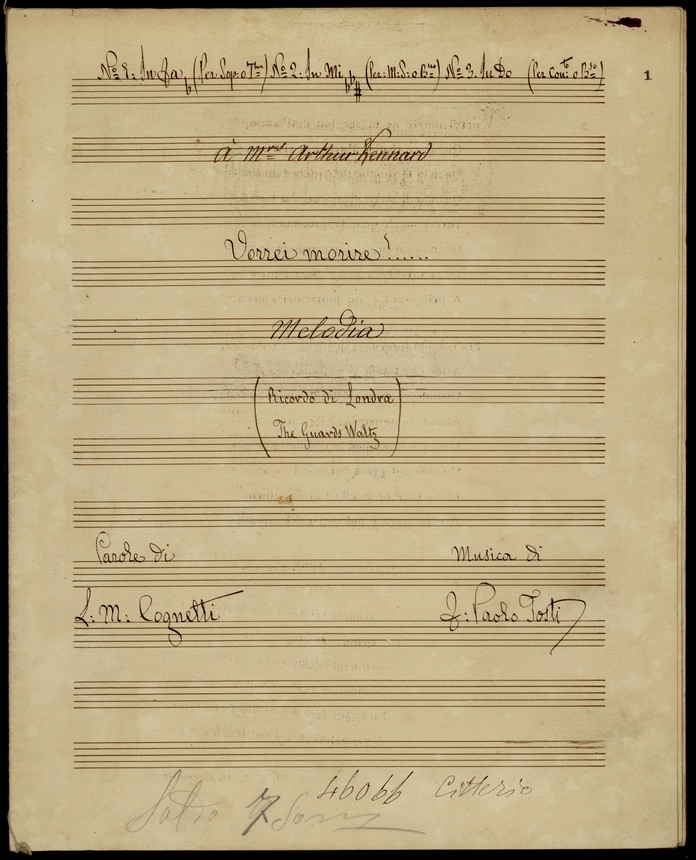 No 1: In Fa ♭ (Per Sop: o Tre) No 2: In Mi ♭♭# (Per: M: S: o Bno) No 3. In Do (Per Conto: o Bso)
1
À Mrs Arthur Kennard
Vorrei morire!.....
Melodia
(Ricordo di Londra
The Guards Waltz)
Parole di Musica di
L: M: Cognetti F: Paolo Tosti
46066 Citterio